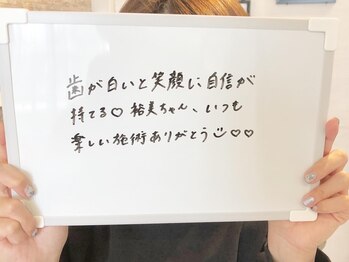 歯が白いと笑顔に自信が
持てる♡ 裕美ちゃん、いつも
楽しい施術ありがとう☺♡♡